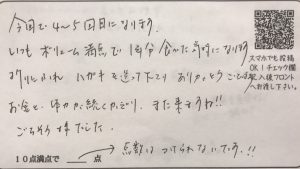 今回で4〜5回目になります。
いつもボリューム満点で1日分食べた気持になります
ハガキを送って下さりありがとうございます
お金と体力が続くかぎり、また来ますね!!
ごちそう様でした。
10点満点で 点
点数はつけられないです!!
スマホでも投稿
OK!チェック欄
記入後フロント
へお渡し下さい。